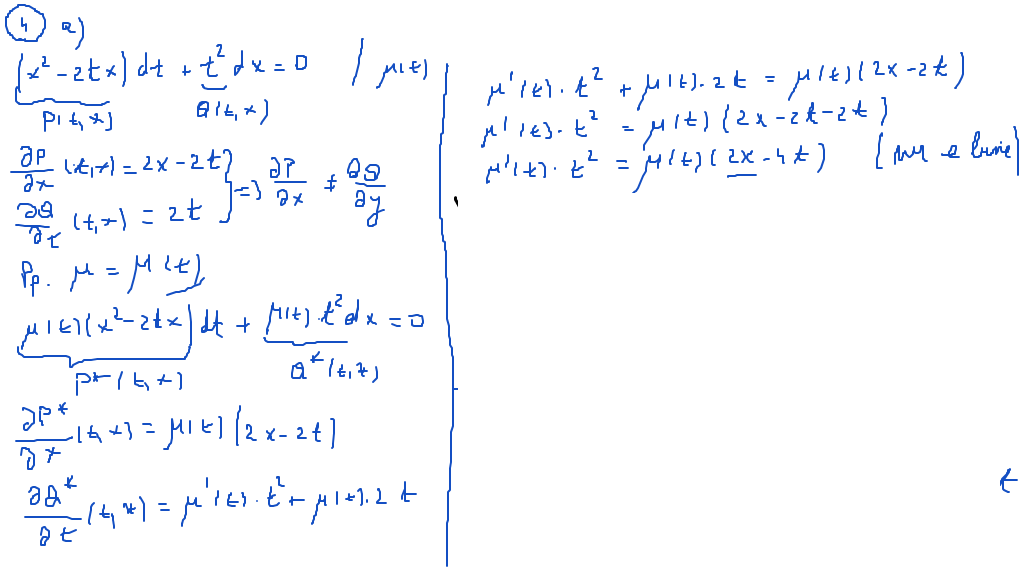 4 a)
(x² - 2tx) dt + t² dx = 0 / μ(t)
P(t,x) Q(t,x)
∂P/∂x (t,x) = 2x - 2t
∂Q/∂t (t,x) = 2t
} => ∂P/∂x ≠ ∂Q/∂y
Pp. μ = μ(t)
μ(t)(x² - 2tx) dt + μ(t)·t² dx = 0
P*(t,x) Q*(t,x)
∂P*/∂x (t,x) = μ(t) (2x - 2t)
∂Q*/∂t (t,x) = μ'(t)·t² + μ(t)·2t
μ'(t)·t² + μ(t)·2t = μ(t)(2x - 2t)
μ'(t)·t² = μ(t)(2x - 2t - 2t)
μ'(t)·t² = μ(t)(2x - 4t) (nu e bine
t